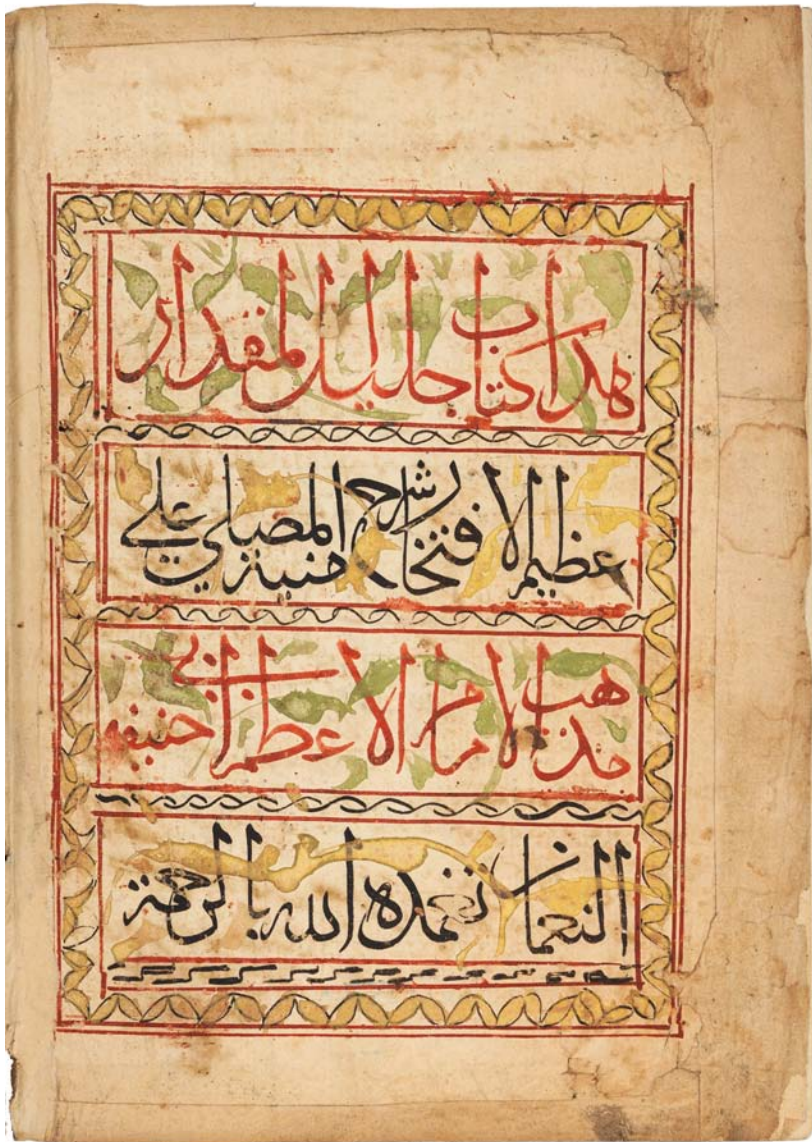 هذا كتاب جليل المقدار
عظيم الافتخار شرح منية المصلي علي
مذهب الامام الاعظم ابي حنيفه
النعمان تغمده الله بالرحمة